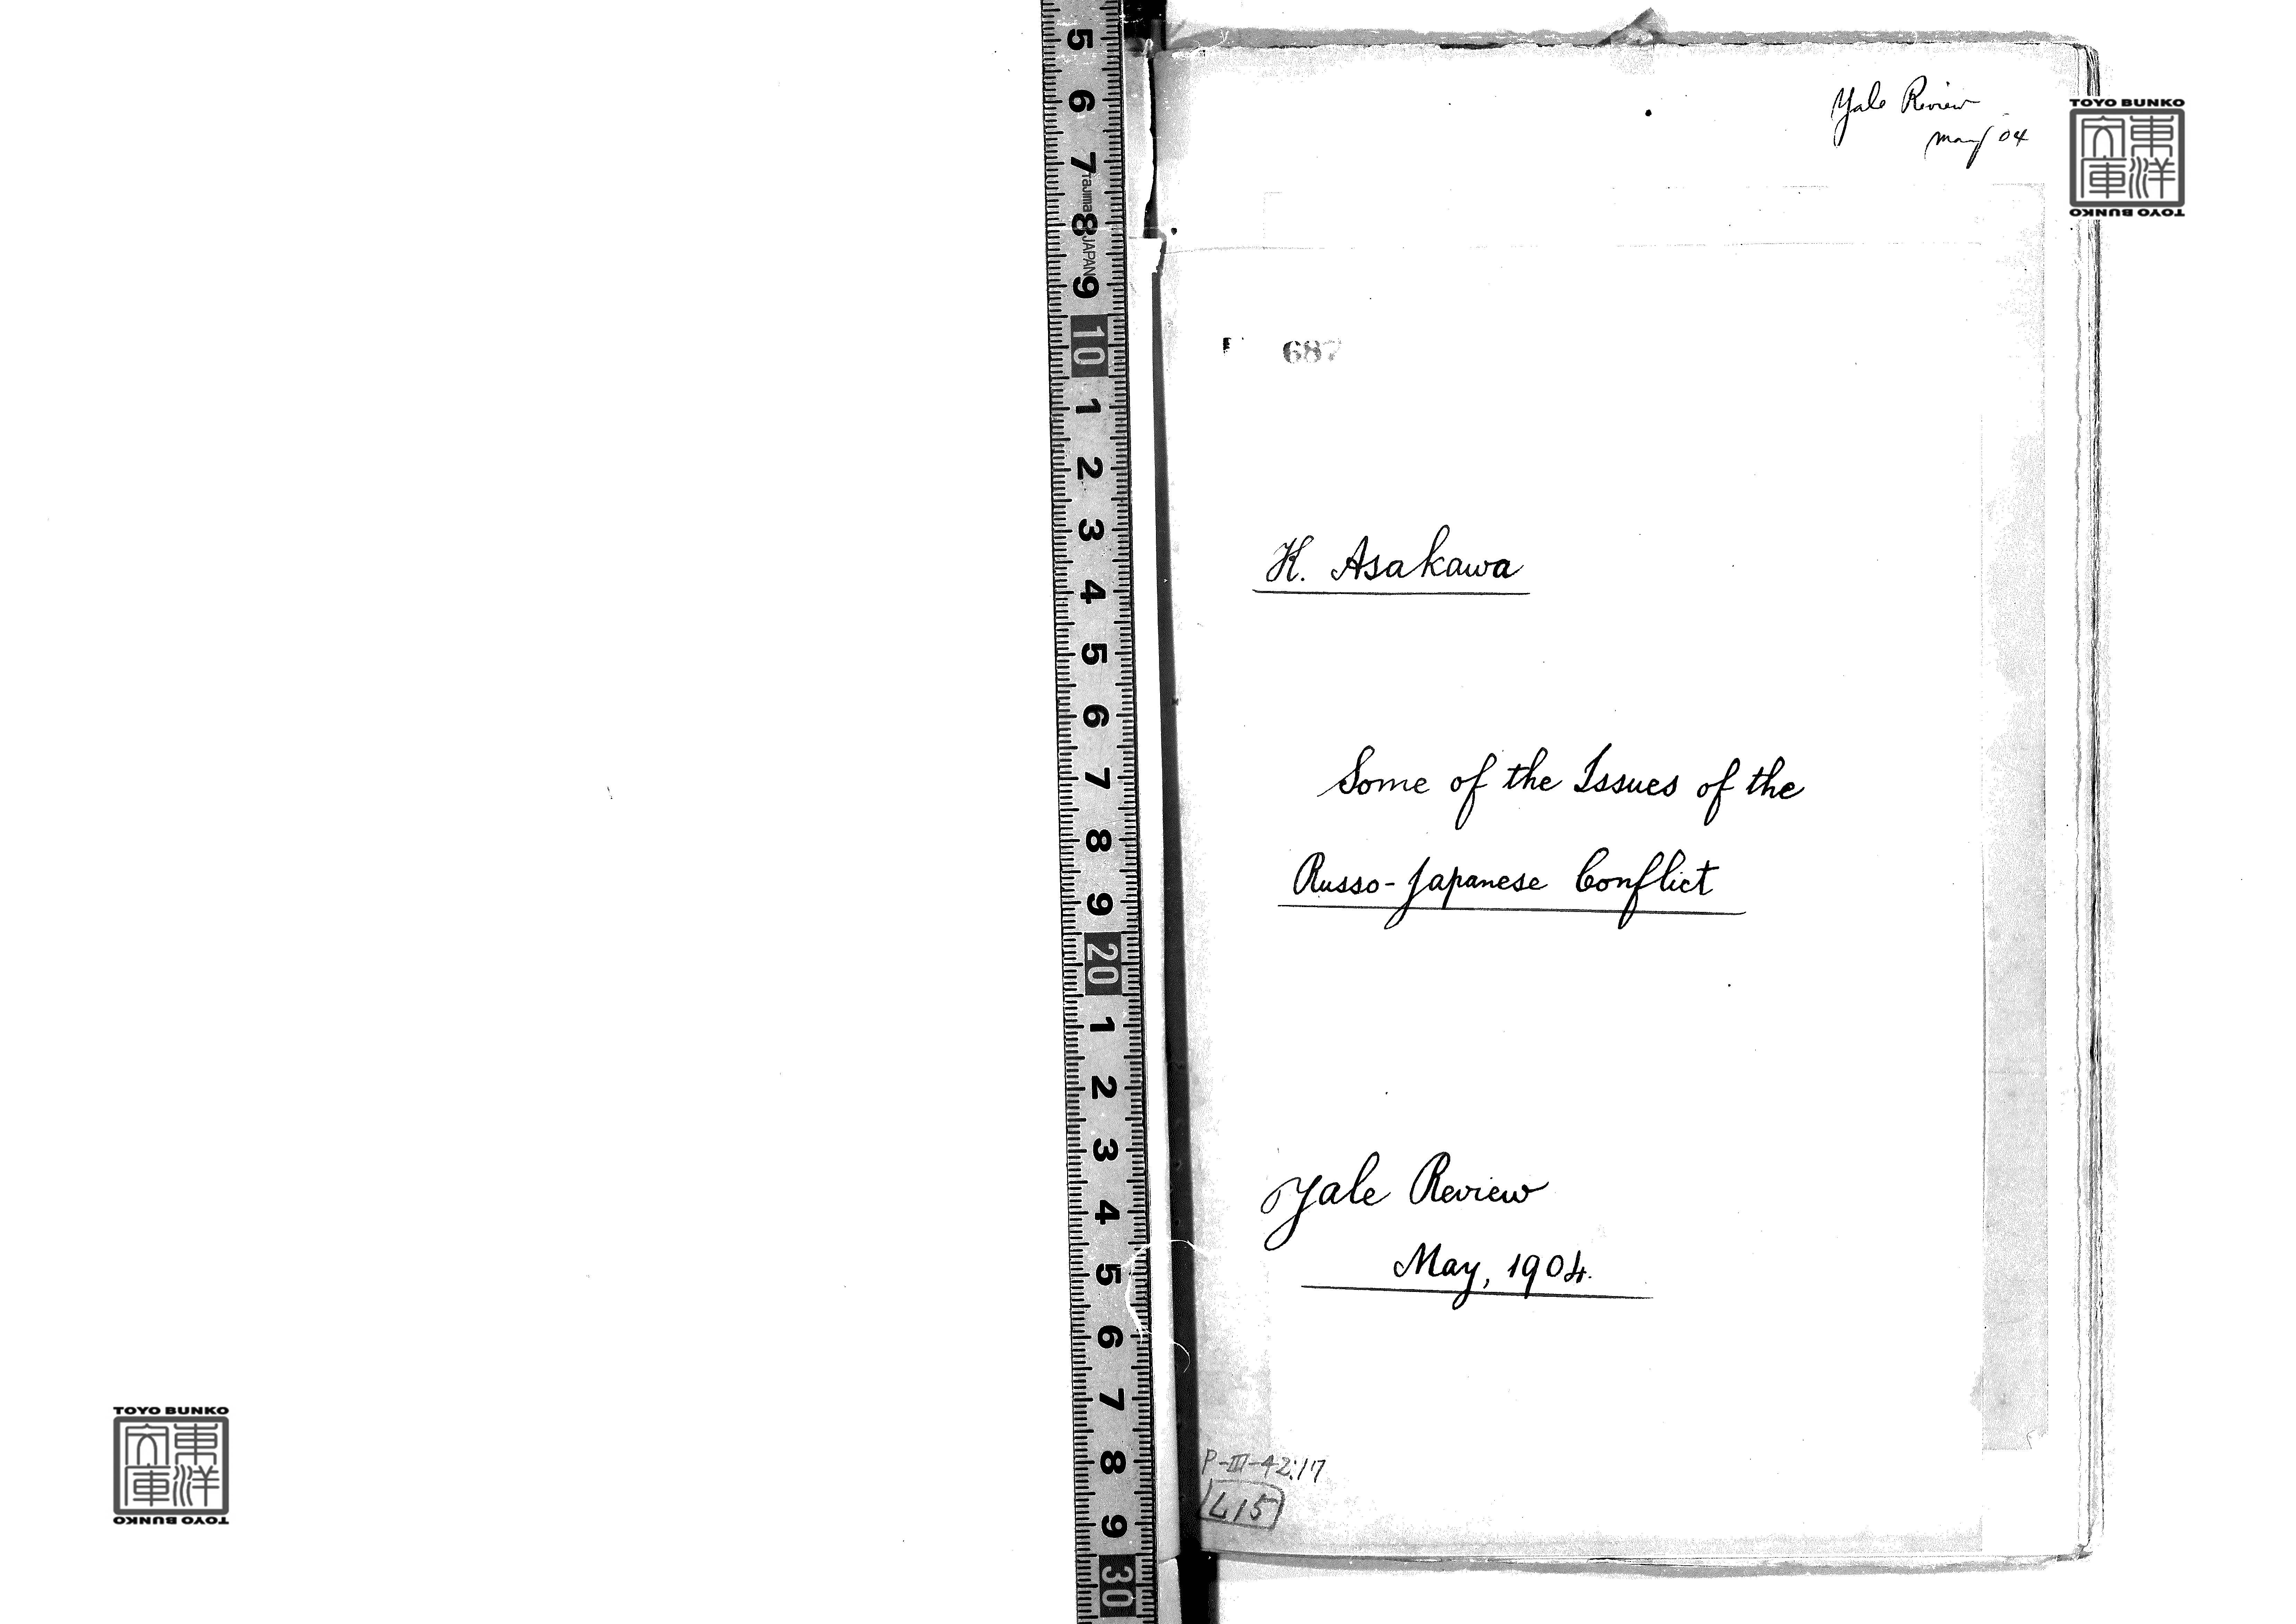 Yale Review
May '04
TOYO BUNKO
東洋
文庫
TOYO BUNKO
687
K. Asakawa
Some of the Issues of the
Russo-Japanese Conflict
Yale Review
May, 1904.
P-III-42:17
L15
TOYO BUNKO
東洋
文庫
TOYO BUNKO
5
6
7
Tajima
8
JAPAN
9
10
1
2
3
4
5
6
7
8
9
20
1
2
3
4
5
6
7
8
9
30